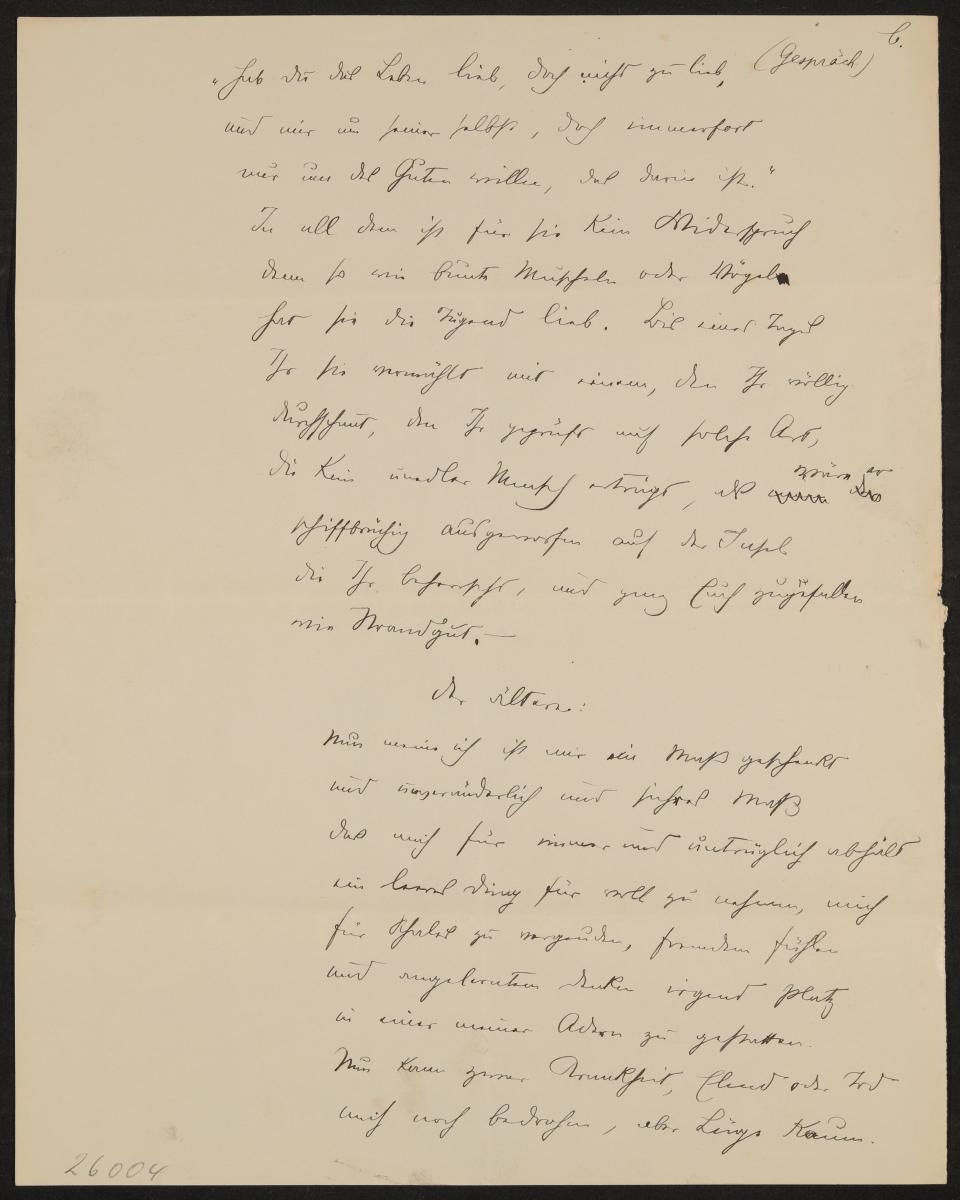 6.
(Gespräch)
„hab du das Leben lieb, doch nicht zu lieb,
und nur um seiner selbst, doch immerfort
nur um des Guten willen, das darin ist.“
In all dem ist für sie kein Widerspruch
denn so wie bunte Muscheln oder Vögel
hat sie die Tugend lieb. Bis eines Tags
Ihr sie vermählt mit einem, den Ihr völlig
durchschaut, den Ihr geprüft auf solche Art,
die kein unedler Mensch erträgt, als wäre er
schiffbrüchig ausgeworfen auf der Insel
die Ihr beherrscht, und ganz Euch zugefallen
wie Strandgut.—
der ältere:
Nun meine ich ist mir ein Maß geschenkt
und unveränderlich und sichres Maß
das mich für immer und untrüglich abhält
ein leeres Ding für voll zu nehmen, mich
für Schales zu vergeuden, fremdem fühlen
und angelerntem denken irgend Platz
in einer meiner Adern zu gestatten.
Nun kann zwar Krankheit, Elend oder Tod
mich noch bedrohen, aber Lüge kaum.
26004